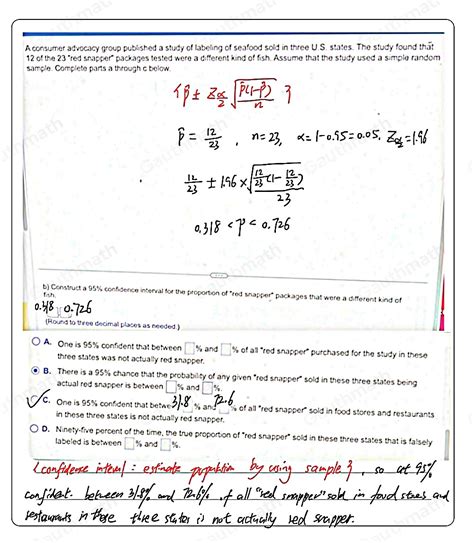 A consumer advocacy group published a study of labeling of seafood sold in three U.S. states. The study found that
12 of the 23 "red snapper" packages tested were a different kind of fish. Assume that the study used a simple random
sample. Complete parts a through c below.
{ p̂ ± Zα/2 √(p̂(1-p̂)/n) }
p̂ = 12/23 , n=23, α=1-0.95=0.05. Zα/2=1.96
12/23 ± 1.96 × √(12/23(1-12/23)/23)
0.318 < p < 0.726
b) Construct a 95% confidence interval for the proportion of "red snapper" packages that were a different kind of
fish.
0.318 0.726
(Round to three decimal places as needed.)
A. One is 95% confident that between % and % of all "red snapper" purchased for the study in these
three states was not actually red snapper.
B. There is a 95% chance that the probability of any given "red snapper" sold in these three states being
actual red snapper is between % and %.
C. One is 95% confident that between 31.8 % and 72.6 % of all "red snapper" sold in food stores and restaurants
in these three states is not actually red snapper.
D. Ninety-five percent of the time, the true proportion of "red snapper" sold in these three states that is falsely
labeled is between % and %.
{confidence interval : estimate population by using sample}, so at 95%
confident. between 31.8% and 72.6% of all "red snapper" sold in food stores and
restaurants in these three states is not actually red snapper.